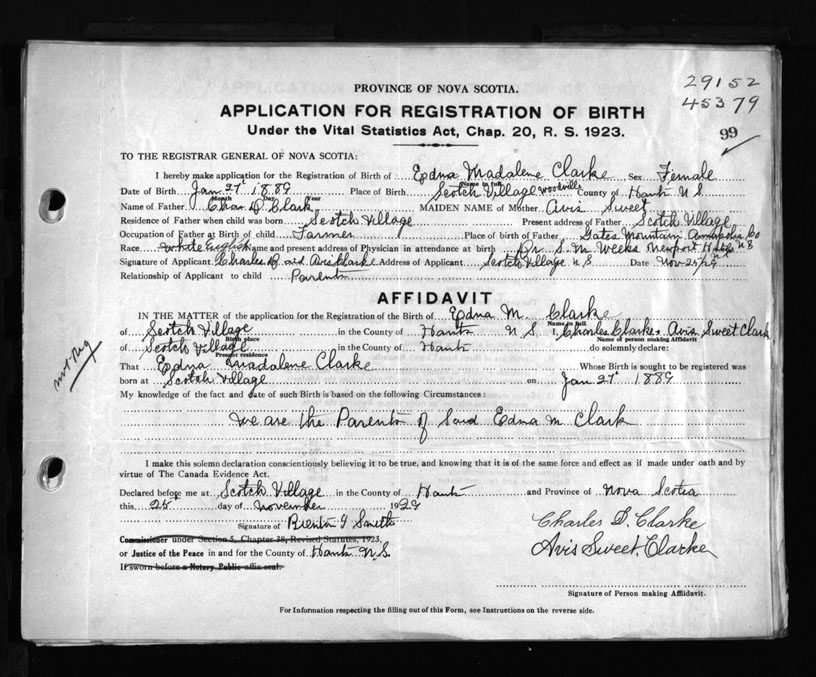 PROVINCE OF NOVA SCOTIA.
29152
45379
99
APPLICATION FOR REGISTRATION OF BIRTH
Under the Vital Statistics Act, Chap. 20, R. S. 1923.
TO THE REGISTRAR GENERAL OF NOVA SCOTIA:
I hereby make application for the Registration of Birth of Edna Madalene Clarke Sex Female
Name in full
Date of Birth Jan 27 1889 Place of Birth Scotch Village Woodville County of Hants N S
Month Day Year
Name of Father Chas D Clark MAIDEN NAME of Mother Avis Sweet
Residence of Father when child was born Scotch Village Present address of Father Scotch Village
Occupation of Father at Birth of child Farmer Place of birth of Father Gates Mountain Annapolis Co
Race White English Name and present address of Physician in attendance at birth Dr. S. M Weeks Newport Hants N S
Signature of Applicant Charles D and Avis Clarke Address of Applicant Scotch Village N S Date Nov 25/29
Relationship of Applicant to child Parents
AFFIDAVIT
IN THE MATTER of the application for the Registration of the Birth of Edna M. Clarke
Name in full
of Scotch Village in the County of Hants N S I, Charles Clarke + Avis Sweet Clark
Birth place Name of person making Affidavit
of Scotch Village in the County of Hants do solemnly declare:
Present residence
That Edna Madalene Clarke Whose Birth is sought to be registered was
born at Scotch Village on Jan 27 1889
My knowledge of the fact and date of such Birth is based on the following Circumstances:
We are the Parents of Said Edna M Clark
I make this solemn declaration conscientiously believing it to be true, and knowing that it is of the same force and effect as if made under oath and by
virtue of The Canada Evidence Act.
Declared before me at Scotch Village in the County of Hants and Province of Nova Scotia
this 25 day of November 1929
Signature of Brenton
Charles D. Clarke
Commissioner under Section 5, Chapter 38, Revised Statutes, 1923,
Avis Sweet Clarke
or Justice of the Peace in and for the County of Hants N.S.
If sworn before a Notary Public affix seal.
Signature of Person making Affidavit.
For Information respecting the filling out of this Form, see Instructions on the reverse side.